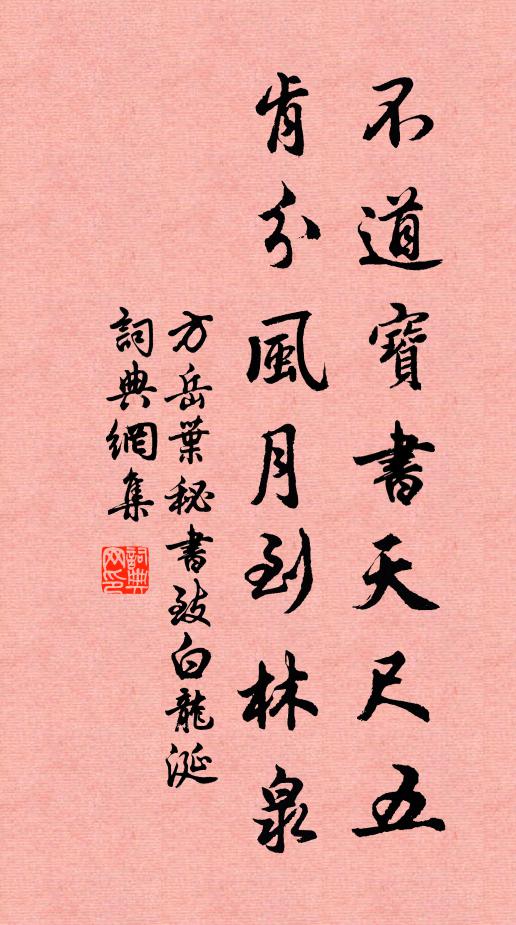 不道寶書天尺五
肯分風月到林泉
方岳葉秘書致白龍涎
詞典網集
詞典網印